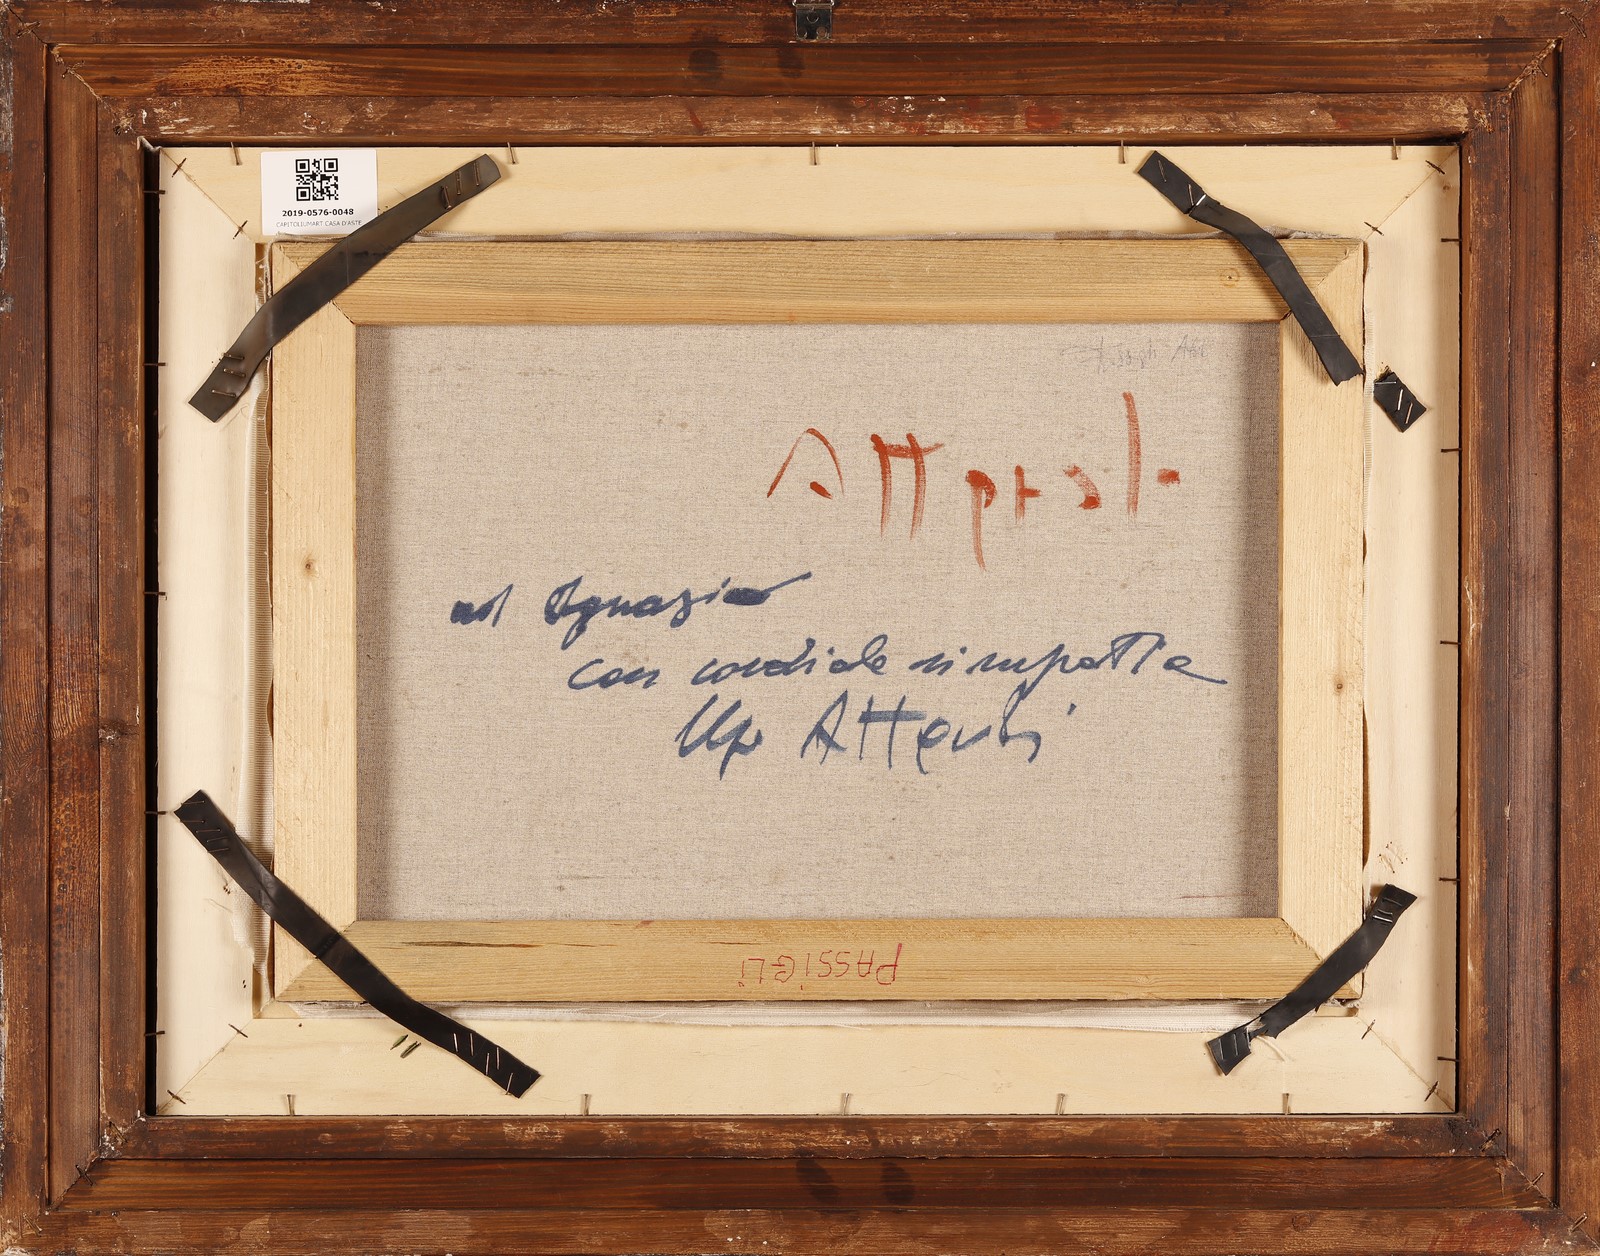 2019-0576-0048
CAPITOLIUMART CASA D'ASTE
Attardi
ad Ignazio
con cordiale simpatia
Ugo Attardi
PASSIGLI